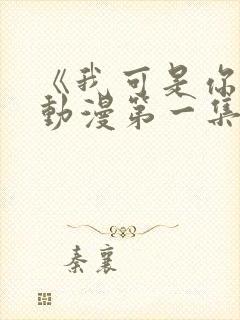 《我可是你
動漫第一集
秦襄